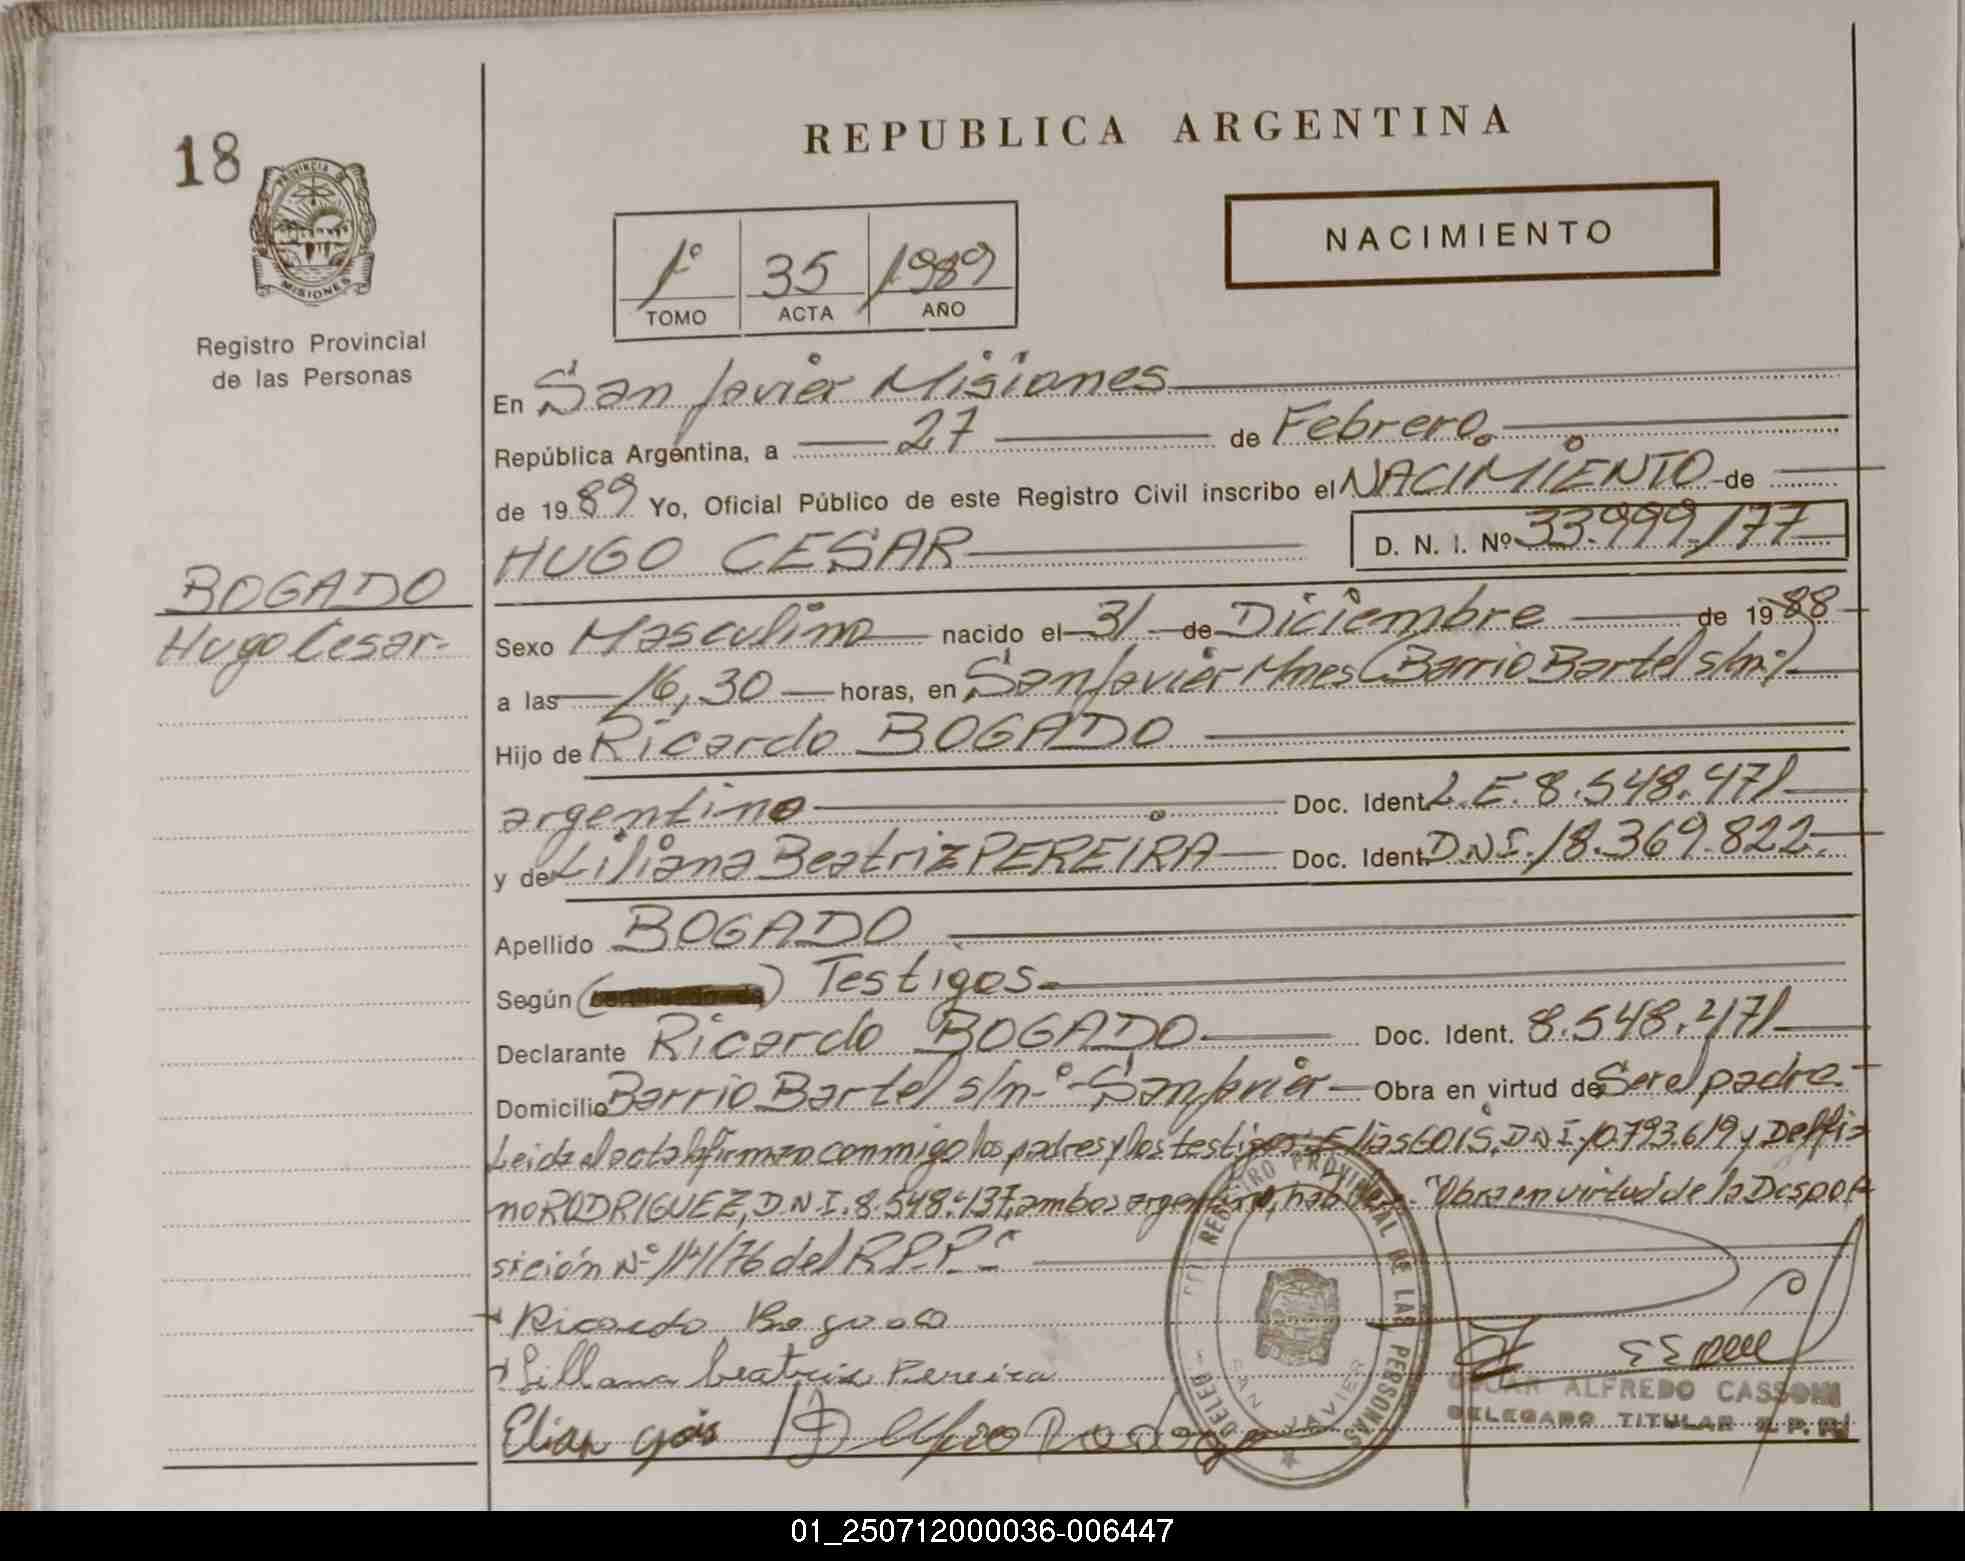 18
PROVINCIA DE
MISIONES
Registro Provincial
de las Personas
REPUBLICA ARGENTINA
NACIMIENTO
1º 35 1989
TOMO ACTA AÑO
En San Javier Misiones
República Argentina, a 27 de Febrero.
de 1989 Yo, Oficial Público de este Registro Civil inscribo el NACIMIENTO de
HUGO CESAR D. N. I. Nº 33.999.177
BOGADO
Hugo Cesar-
Sexo Masculino nacido el 31 de Diciembre de 1988
a las 16,30 horas, en San Javier Mnes (Barrio Bartel s/nº)
Hijo de Ricardo BOGADO
argentino Doc. Ident. L.E. 8.548.471
y de Liliana Beatriz PEREIRA Doc. Ident. D.N.I. 18.369.822.
Apellido BOGADO
Según ( ) Testigos.
Declarante Ricardo BOGADO Doc. Ident. 8.548.471
Domicilio Barrio Bartel s/n-º San Javier Obra en virtud de Ser el padre.
Leida el acta la firman conmigo los padres y los testigos: Elias GOIS, D.N.I. 10.793.619 y Delfi
no RODRIGUEZ, D.N.I. 8.548.437, ambos argentino, habiles. "Obra en virtud de la Dispo
sición Nº 114/76 del R.P.P.
Ricardo Bogado
Liliana beatriz Pereira
Elias gois Delfino Rodrigue
REGISTRO PROVINCIAL DE LAS PERSONAS
SAN JAVIER
OSCAR ALFREDO CASSONI
DELEGADO TITULAR R. P. P.
01_250712000036-006447